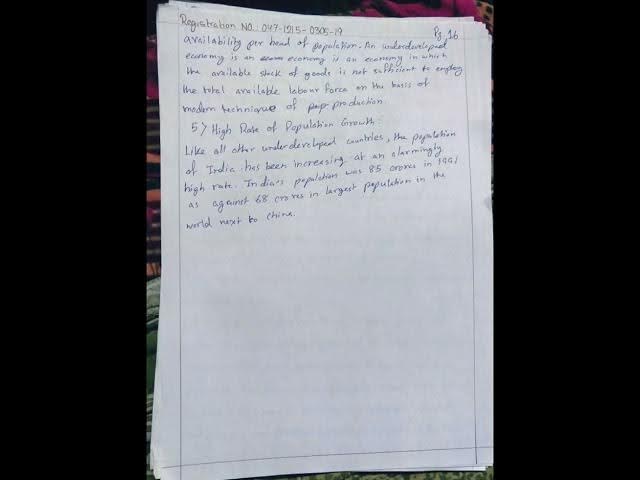 Registration NO.: 047-1215-0305-19
Pg. 16
availability per head of population. An underdeveloped
economy is an economy is an economy in which
the available stock of goods is not sufficient to employ
the total available labour force on the basis of
modern technique of pop production.
5) High Rate of Population Growth:
Like all other underdeveloped countries, the population
of India has been increasing at an alarmingly
high rate. India's population was 85 crores in 1991
as against 68 crores in largest population in the
world next to China.